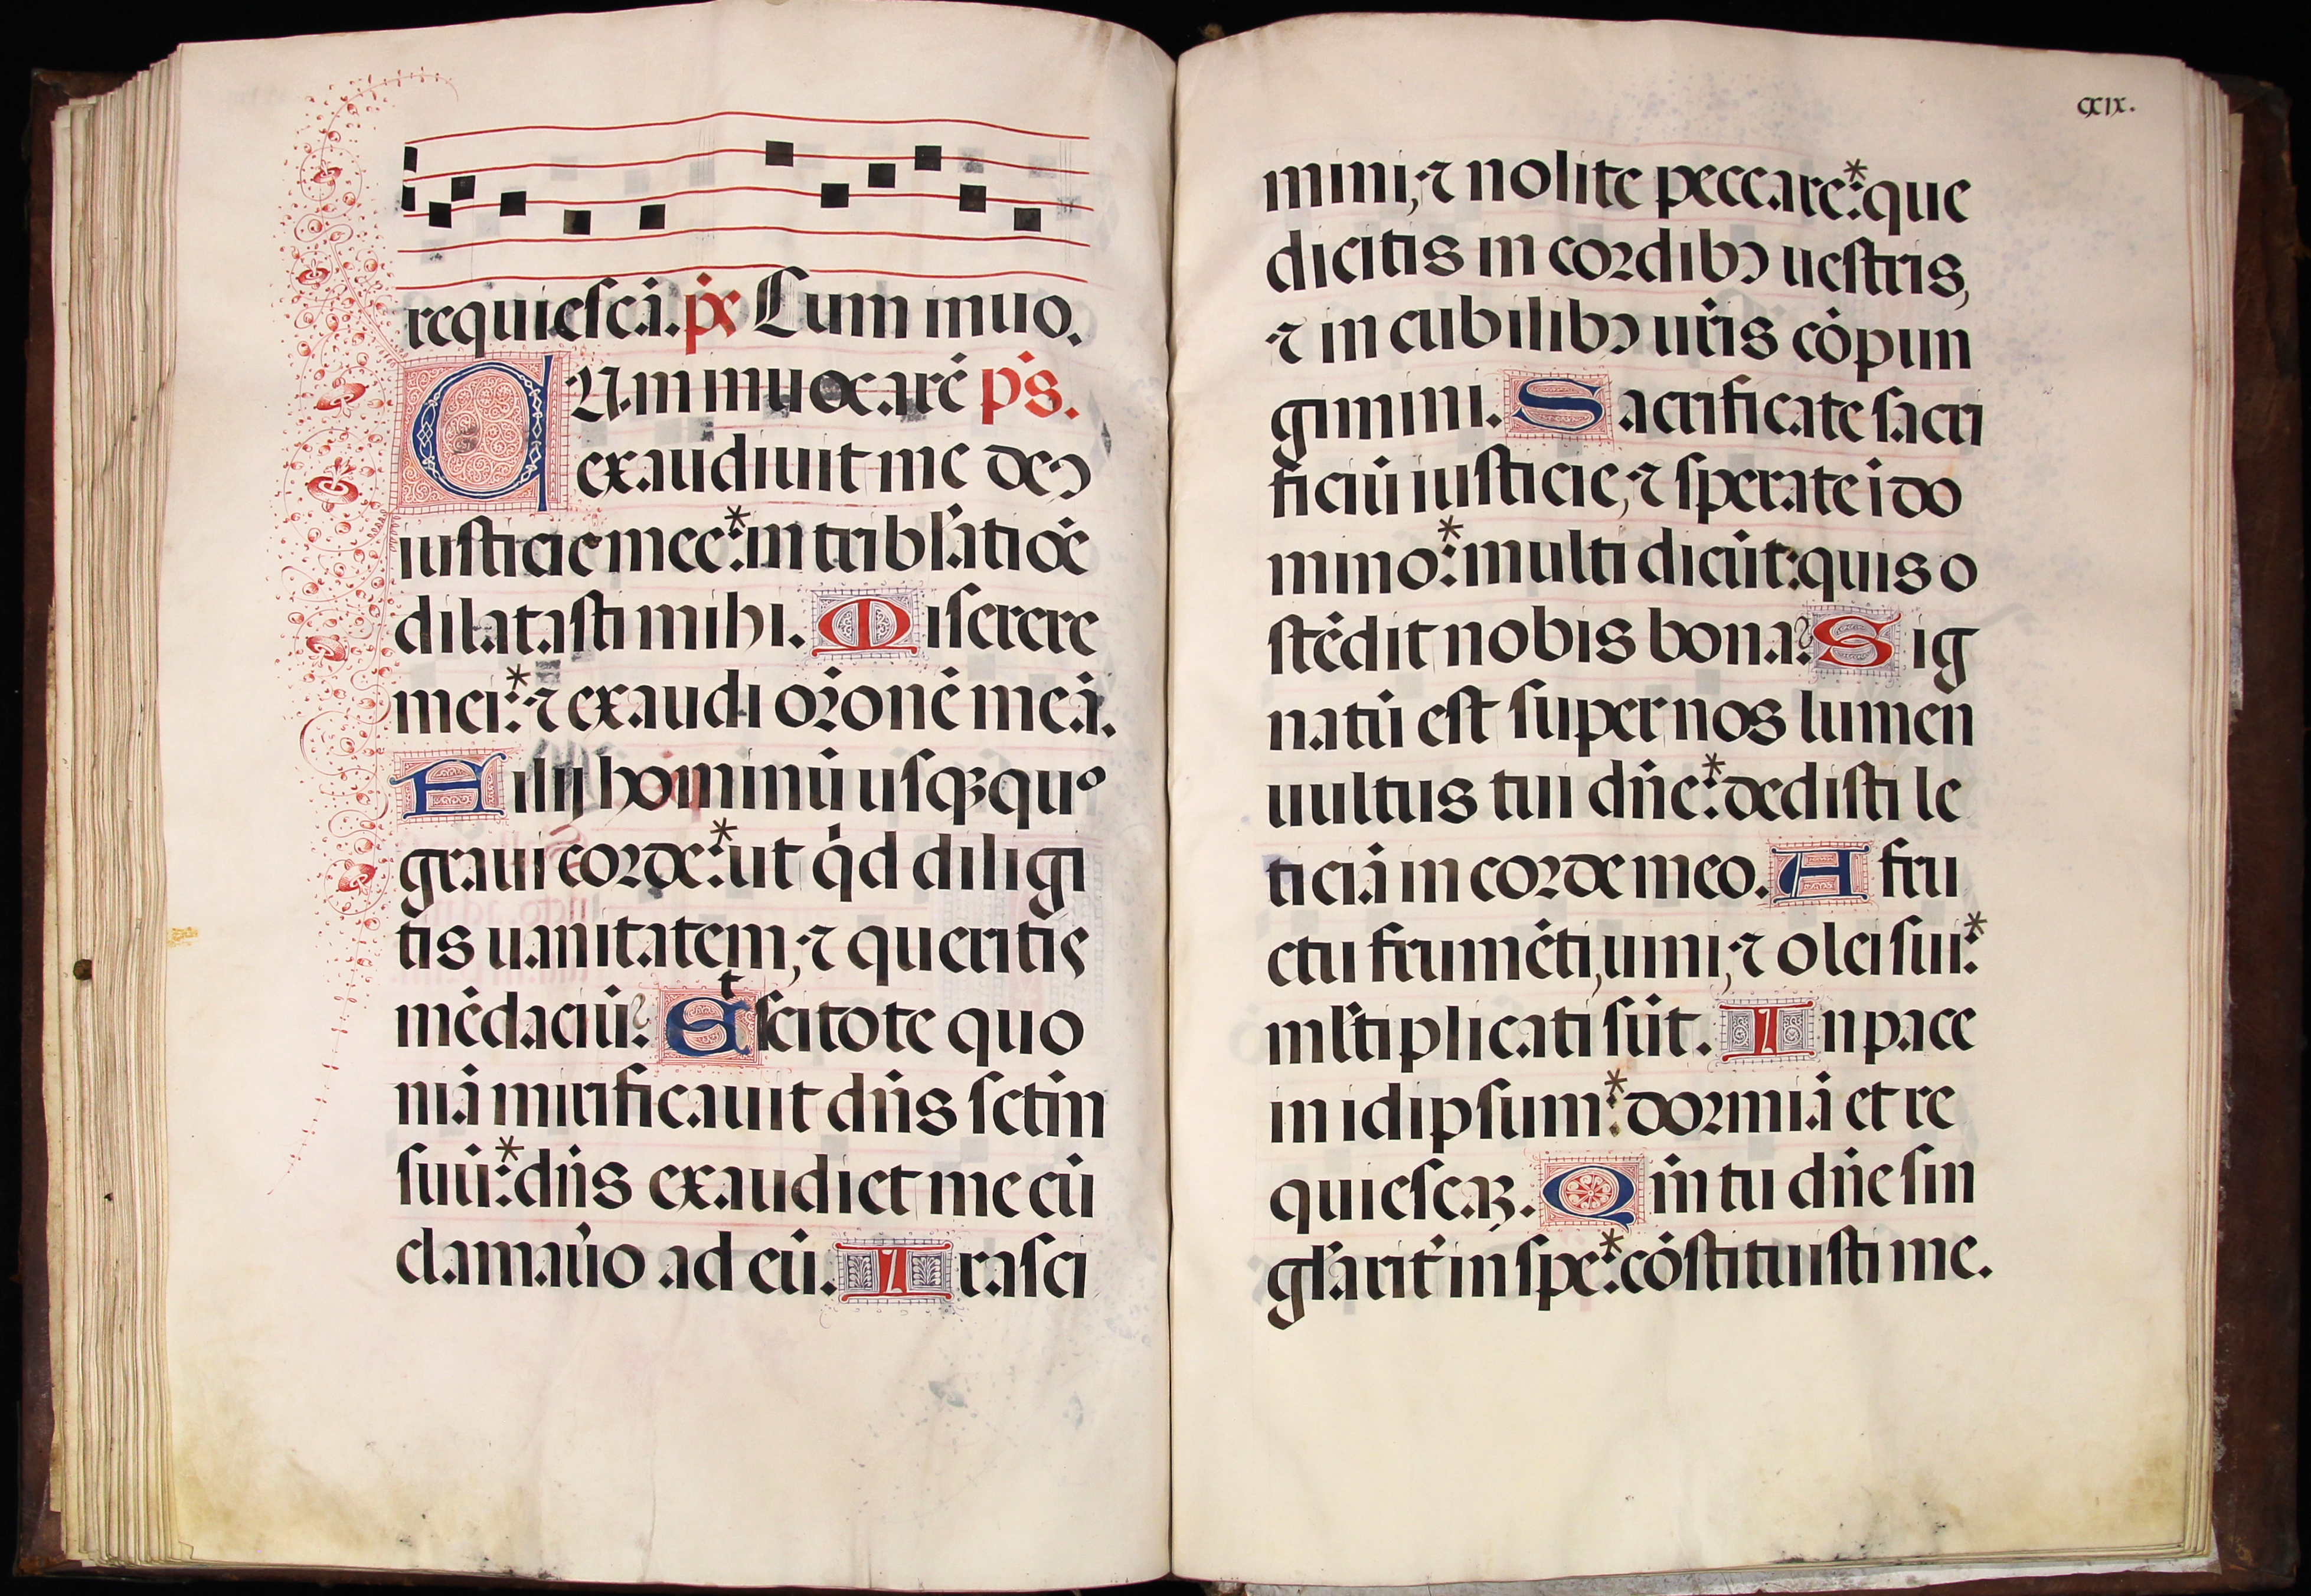 requiescā. ps̄ Cum inuo.
CUm inuocarē ps̄.
exaudiuit me deꝰ
iusticie mee:* in tribl̄atiōe
dilatasti mihi. Miserere
mei:* ⁊ exaudi orōnē meā.
Filij hominū usqꝫ quº
graui corde:* ut qd̄ diligi
tis uanitatem, ⁊ queritis
mēdaciū? Et scitote quo
niā mirificauit dn̄s sctm̄
suū:* dn̄s exaudiet me cū
clamau̓o ad eū. Irasci
cxix.
mini, ⁊ nolite peccare:* que
dicitis in cordibꝰ uestris,
⁊ in cubilibꝰ ur̄is cōpun
gimini. Sacrificate sacri
ficiū iusticie, ⁊ sperate ī do
mino:* multi dicūt: quis o
stēdit nobis bona? Sig
natū est super nos lumen
uultus tui dn̄e:* dedisti le
ticiā in corde meo. A fru
ctu frumēti, uini, ⁊ olei sui:*
ml̄tiplicati sūt. In pace
in idipsum:* dormiā et re
quiescaꝫ. Qm̄ tu dn̄e sin
gl̄arit̓ in spe:* cōstituisti me.